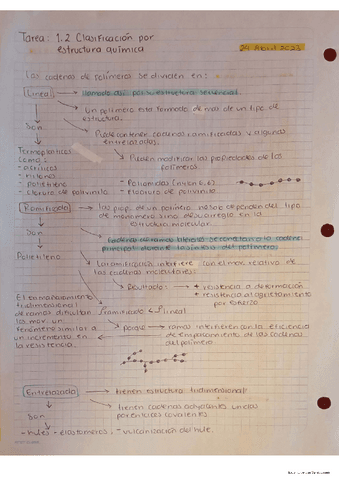 Tarea: 1.2 Clasificación por
estructura química
24 Abril 2023
Las cadenas de polímeros se dividen en:
Lineal
llamado así por su estructura secuencial.
Un polímero esta formado de mas de un tipo de
estructura.
Son
Puede contener cadenas ramificadas y algunas
entrelazadas.
Termoplasticos
como:
Pueden modificar las propiedades de los
polímeros
- acrilicos
- nilones
- polietileno
- cloruro de polivinilo
- Poliamidas (nilon 6.6)
- Ploruro de polivinilo
Ramificado
las prop. de un polímero no solo dependen del tipo
de monómero sino de su arreglo en la
estructura molecular.
Son
Cadenas de ramas laterales se conectan a la cadena
principal durante la síntesis del polímero
Polietileno
La ramificación interfiere con el mov. relativo de
las cadenas moleculares.
Resultado:
+ resistencia a deformación
+ resistencia al agrietamiento
por esfuerzo
El
tridimensional
de ramas dificultan
los mov. un
fenómeno similar a
un incremento en
la resistencia.
ramificado
lineal
porque
ramas interfieren con la eficiencia
de empacamiento de las cadenas
del polímero.
Entrelazado
tienen estructura tridimensional
tienen cadenas adyacentes unidas
por enlaces covalentes
Son
- hules - elastómeros - vulcanización del hule.